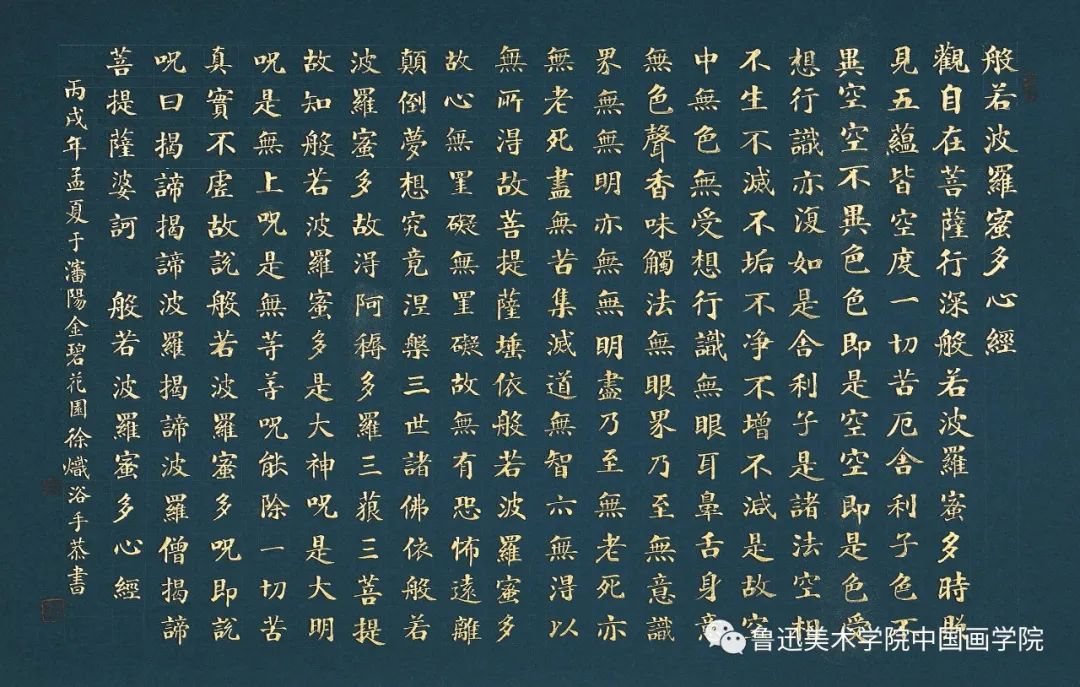 般若波羅蜜多心經
觀自在菩薩行深般若波羅蜜多時照
見五蘊皆空度一切苦厄舍利子色不
異空空不異色色即是空空即是色受
想行識亦復如是舍利子是諸法空相
不生不滅不垢不淨不增不減是故空
中無色無受想行識無眼耳鼻舌身意
無色聲香味觸法無眼界乃至無意識
界無無明亦無無明盡乃至無老死亦
無老死盡無苦集滅道無智亦無得以
無所得故菩提薩埵依般若波羅蜜多
故心無罣礙無罣礙故無有恐怖遠離
顛倒夢想究竟涅槃三世諸佛依般若
波羅蜜多故得阿耨多羅三藐三菩提
故知般若波羅蜜多是大神呪是大明
呪是無上呪是無等等呪能除一切苦
真實不虛故說般若波羅蜜多呪即說
呪曰揭諦揭諦波羅揭諦波羅僧揭諦
菩提薩婆訶 般若波羅蜜多心經
丙戌年孟夏于瀋陽金碧花園徐熾浴手恭書
鲁迅美术学院中国画学院